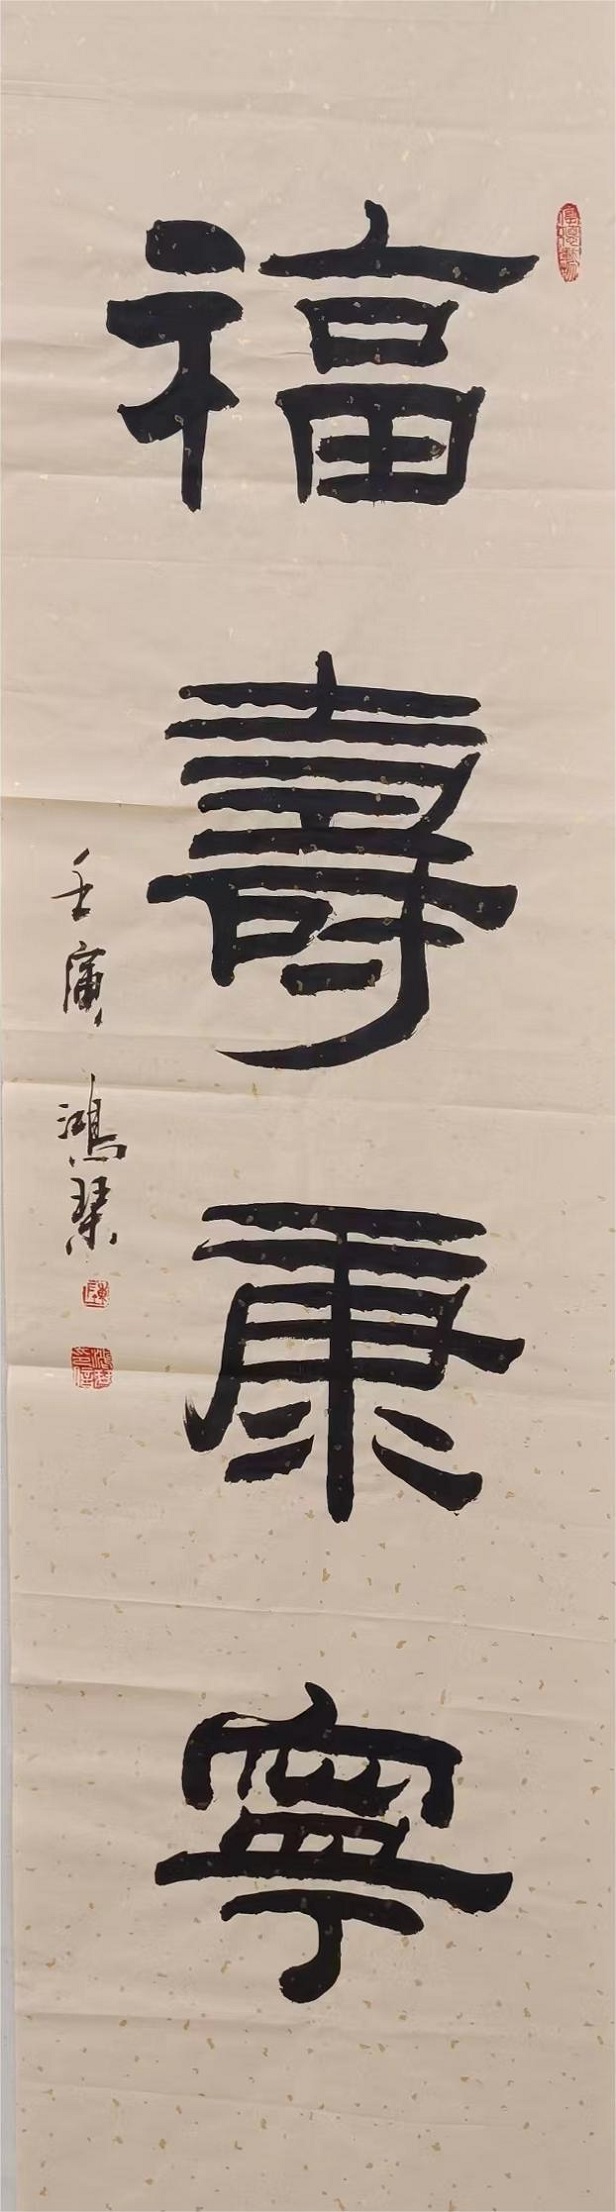 福壽康寧
壬寅 鴻琹